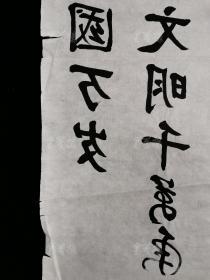 國万岁
文明千萬年